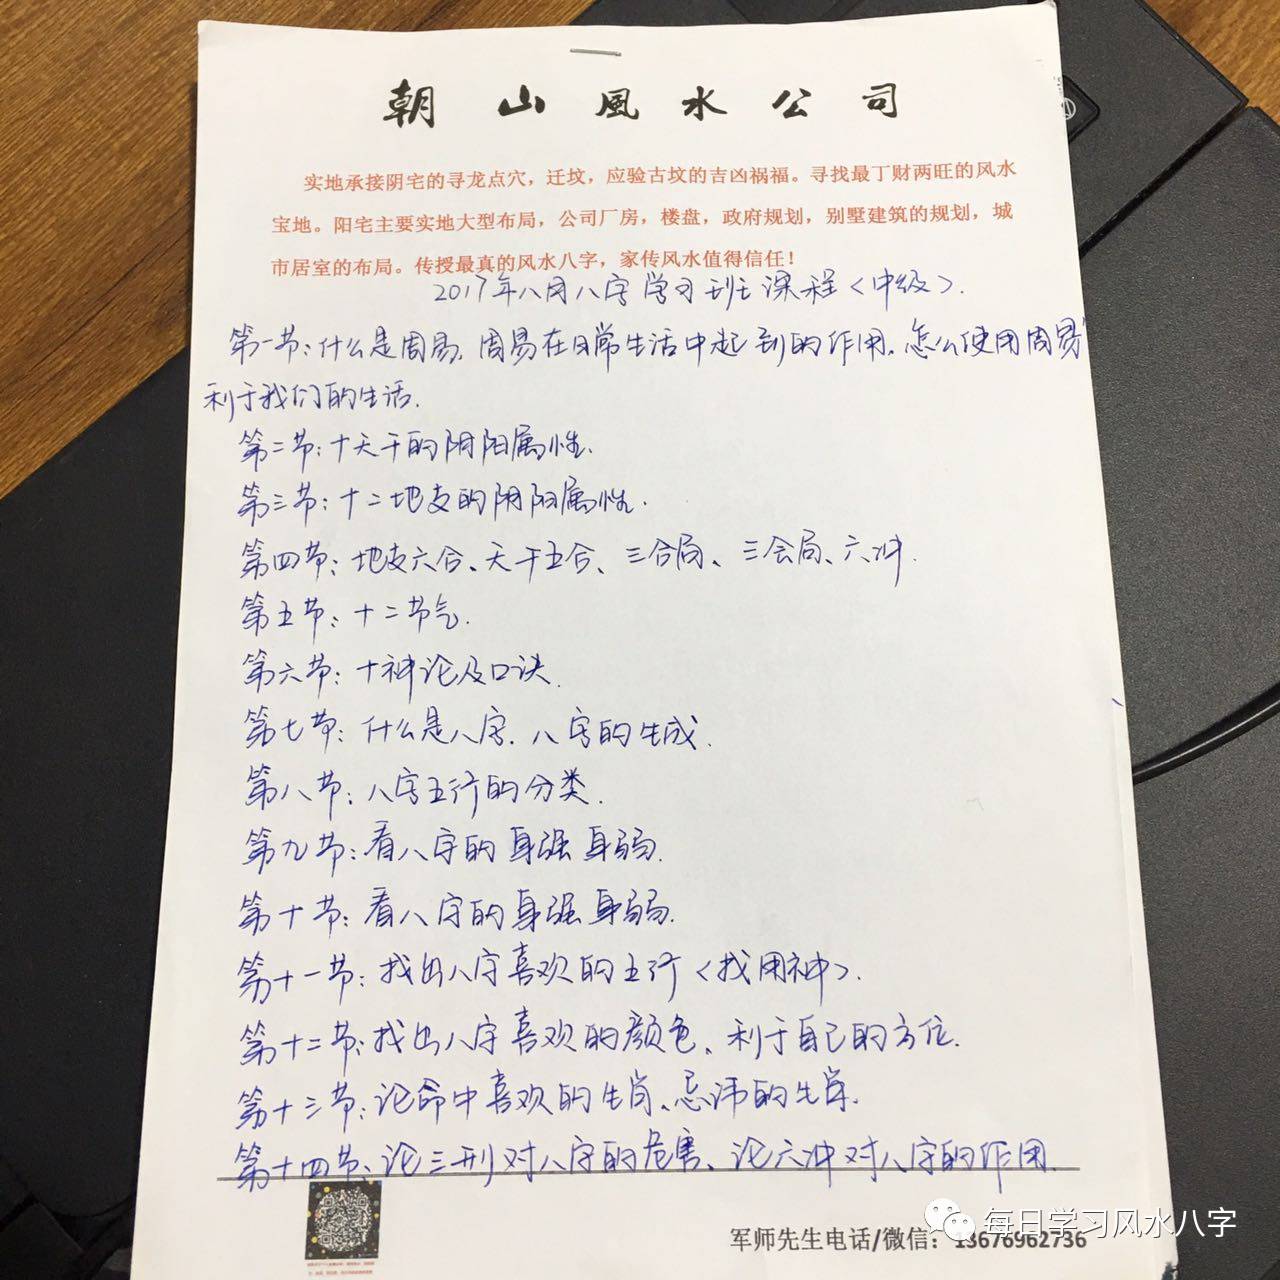 朝山風水公司
实地承接阴宅的寻龙点穴，迁坟，应验古坟的吉凶祸福。寻找最丁财两旺的风水
宝地。阳宅主要实地大型布局，公司厂房，楼盘，政府规划，别墅建筑的规划，城
市居室的布局。传授最真的风水八字，家传风水值得信任！
2017年八月八字学习班课程<中级>.
第一节:什么是周易.周易在日常生活中起到的作用.怎么使用周易
利于我们的生活.
第二节:十天干的阴阳属性.
第三节:十二地支的阴阳属性.
第四节:地支六合、天干五合、三合局、三会局、六冲.
第五节:十二节气.
第六节:十神论及口诀.
第七节:什么是八字.八字的生成.
第八节:八字五行的分类.
第九节:看八字的身强身弱.
第十节:看八字的身强身弱.
第十一节:找出八字喜欢的五行<找用神>.
第十二节:找出八字喜欢的颜色、利于自己的方位.
第十三节:论命中喜欢的生肖、忌讳的生肖.
第十四节、论三刑对八字的危害、论六冲对八字的作用.
军师先生电话/微信：13676962736
每日学习风水八字